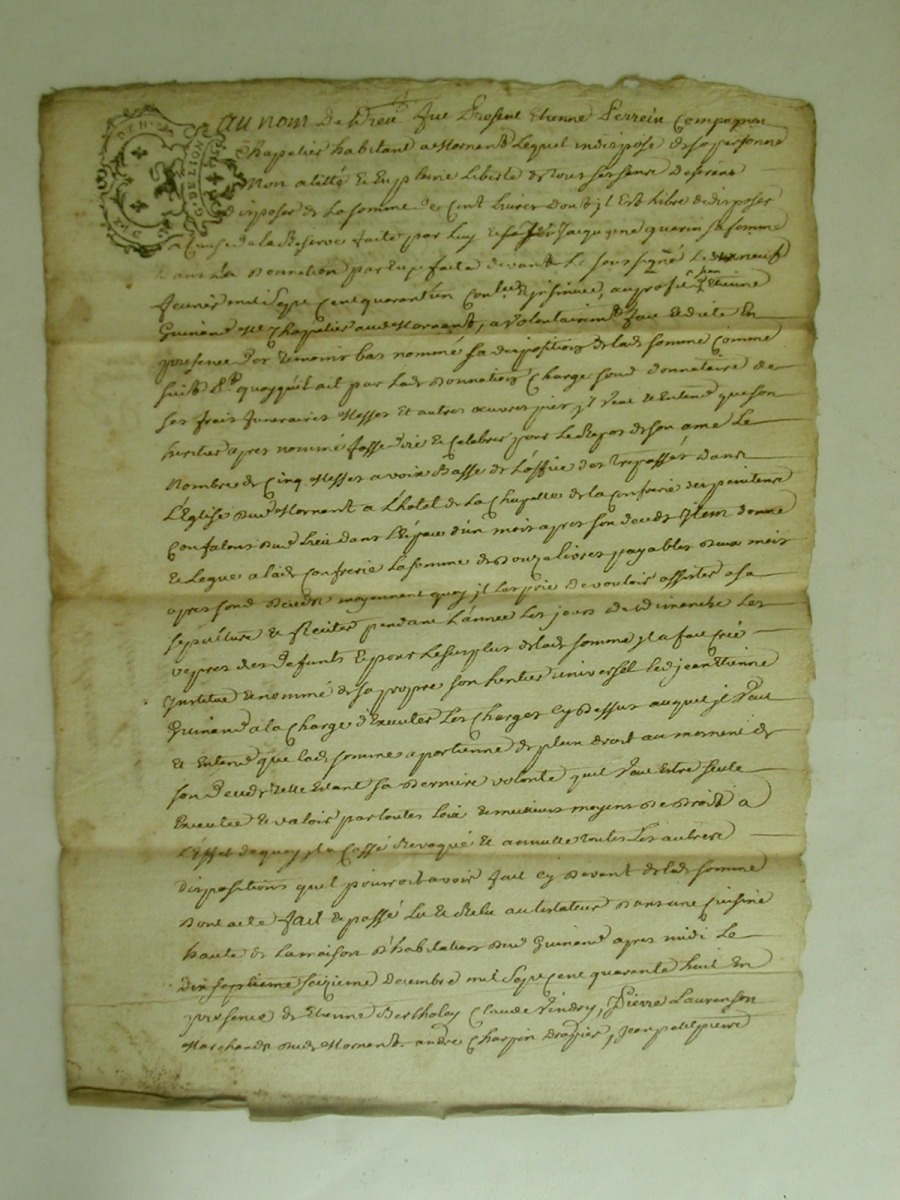 DE LION
au nom De Dieu fut Present Etienne Perrein Compagnon
Chapelier habitant a Mornant Lequel indisposé de sa personne
Non alitté Et En pleine Liberté de tous ses sens Desirant
Disposer de La somme de Cent Livres dont jl Est Libre de disposer
a Cause de la Reserve faite par Luy Et Jacquyme guerin sa femme
Dans La Donnation par Eux faite devant Le soussigné Le neuf
Janvier mil sept Cent quarant'un Controllé & jnsinué, au profit de Jean Etienne
Guinand Me Chappelier aud. Mornant, a volontairemt fait Et dicté En
presence des temoins bas nommé sa disposition de lad. somme Comme
suit Et quoyqu'il ait par lad. Donnation Chargé son d. donnataire de
ses frais funeraires Messes Et autres œuvres pies jl Veut Et Entend que son
heritier apres nommé fasse dire Et Celebrer pour Le Repos de son ame Le
Nombre de Cinq Messes a voix Basse de L'office des Trepassés dans
L'Eglise dud. Mornant a L'hotel de La Chapelle de la Confrerie des penitens
Confalons dud. Lieu dans L'Espace d'un mois apres son deceds jtem donne
Et Legue a lad. Confrerie La somme de Douze livres payables deux mois
apres son d. deceds moyennant quoy jl Les prie de vouloir assister a sa
sepulture Et Reciter pendant L'année Les jours de Dimanche Les
vepres des Defunts Et pour Le surplus de lad. somme jl a fait créé
jnstitué Et nommé de sa propre son heritier universel Led. jean Etienne
Guinand a la Charge d'Executer Les Charges Cy Dessus auquel jl Veut
Et Entend que lad. somme apartienne de plein droit au moment de
son Deceds telle Etant sa Derniere volonté qu'il Veut Estre seule
Executée Et valoir par toutes Loix Et meilleurs moyens De droit a
L'Effet de quoy jl a Cassé Revoqué Et annullé toutes Les autres
dispositions qu'il pourroit avoir fait Cy Devant de lad. somme
Dont acte fait Et passé Lu Et Relu au testateur Dans une Cuisine
haute de La maison d'habitation dud. Guinand apres midi Le
seizieme Decembre mil sept Cent quarante huit En
presence de Etienne Bertholay Claude Vindry, Pierre Laurenson
Marchands dud. Mornant andré Charpin drapier, Jean petit pierre